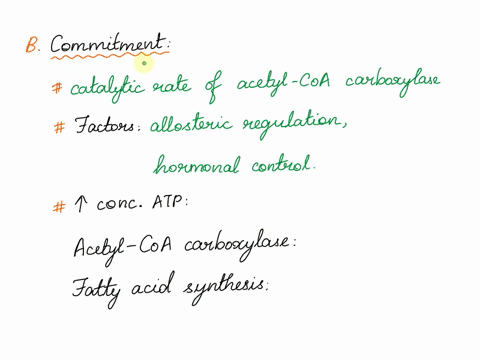 B. Commitment:
# catalytic rate of acetyl-CoA carboxylase
# Factors: allosteric regulation,
hormonal control.
# ↑ conc. ATP:
Acetyl-CoA carboxylase:
Fatty acid synthesis: